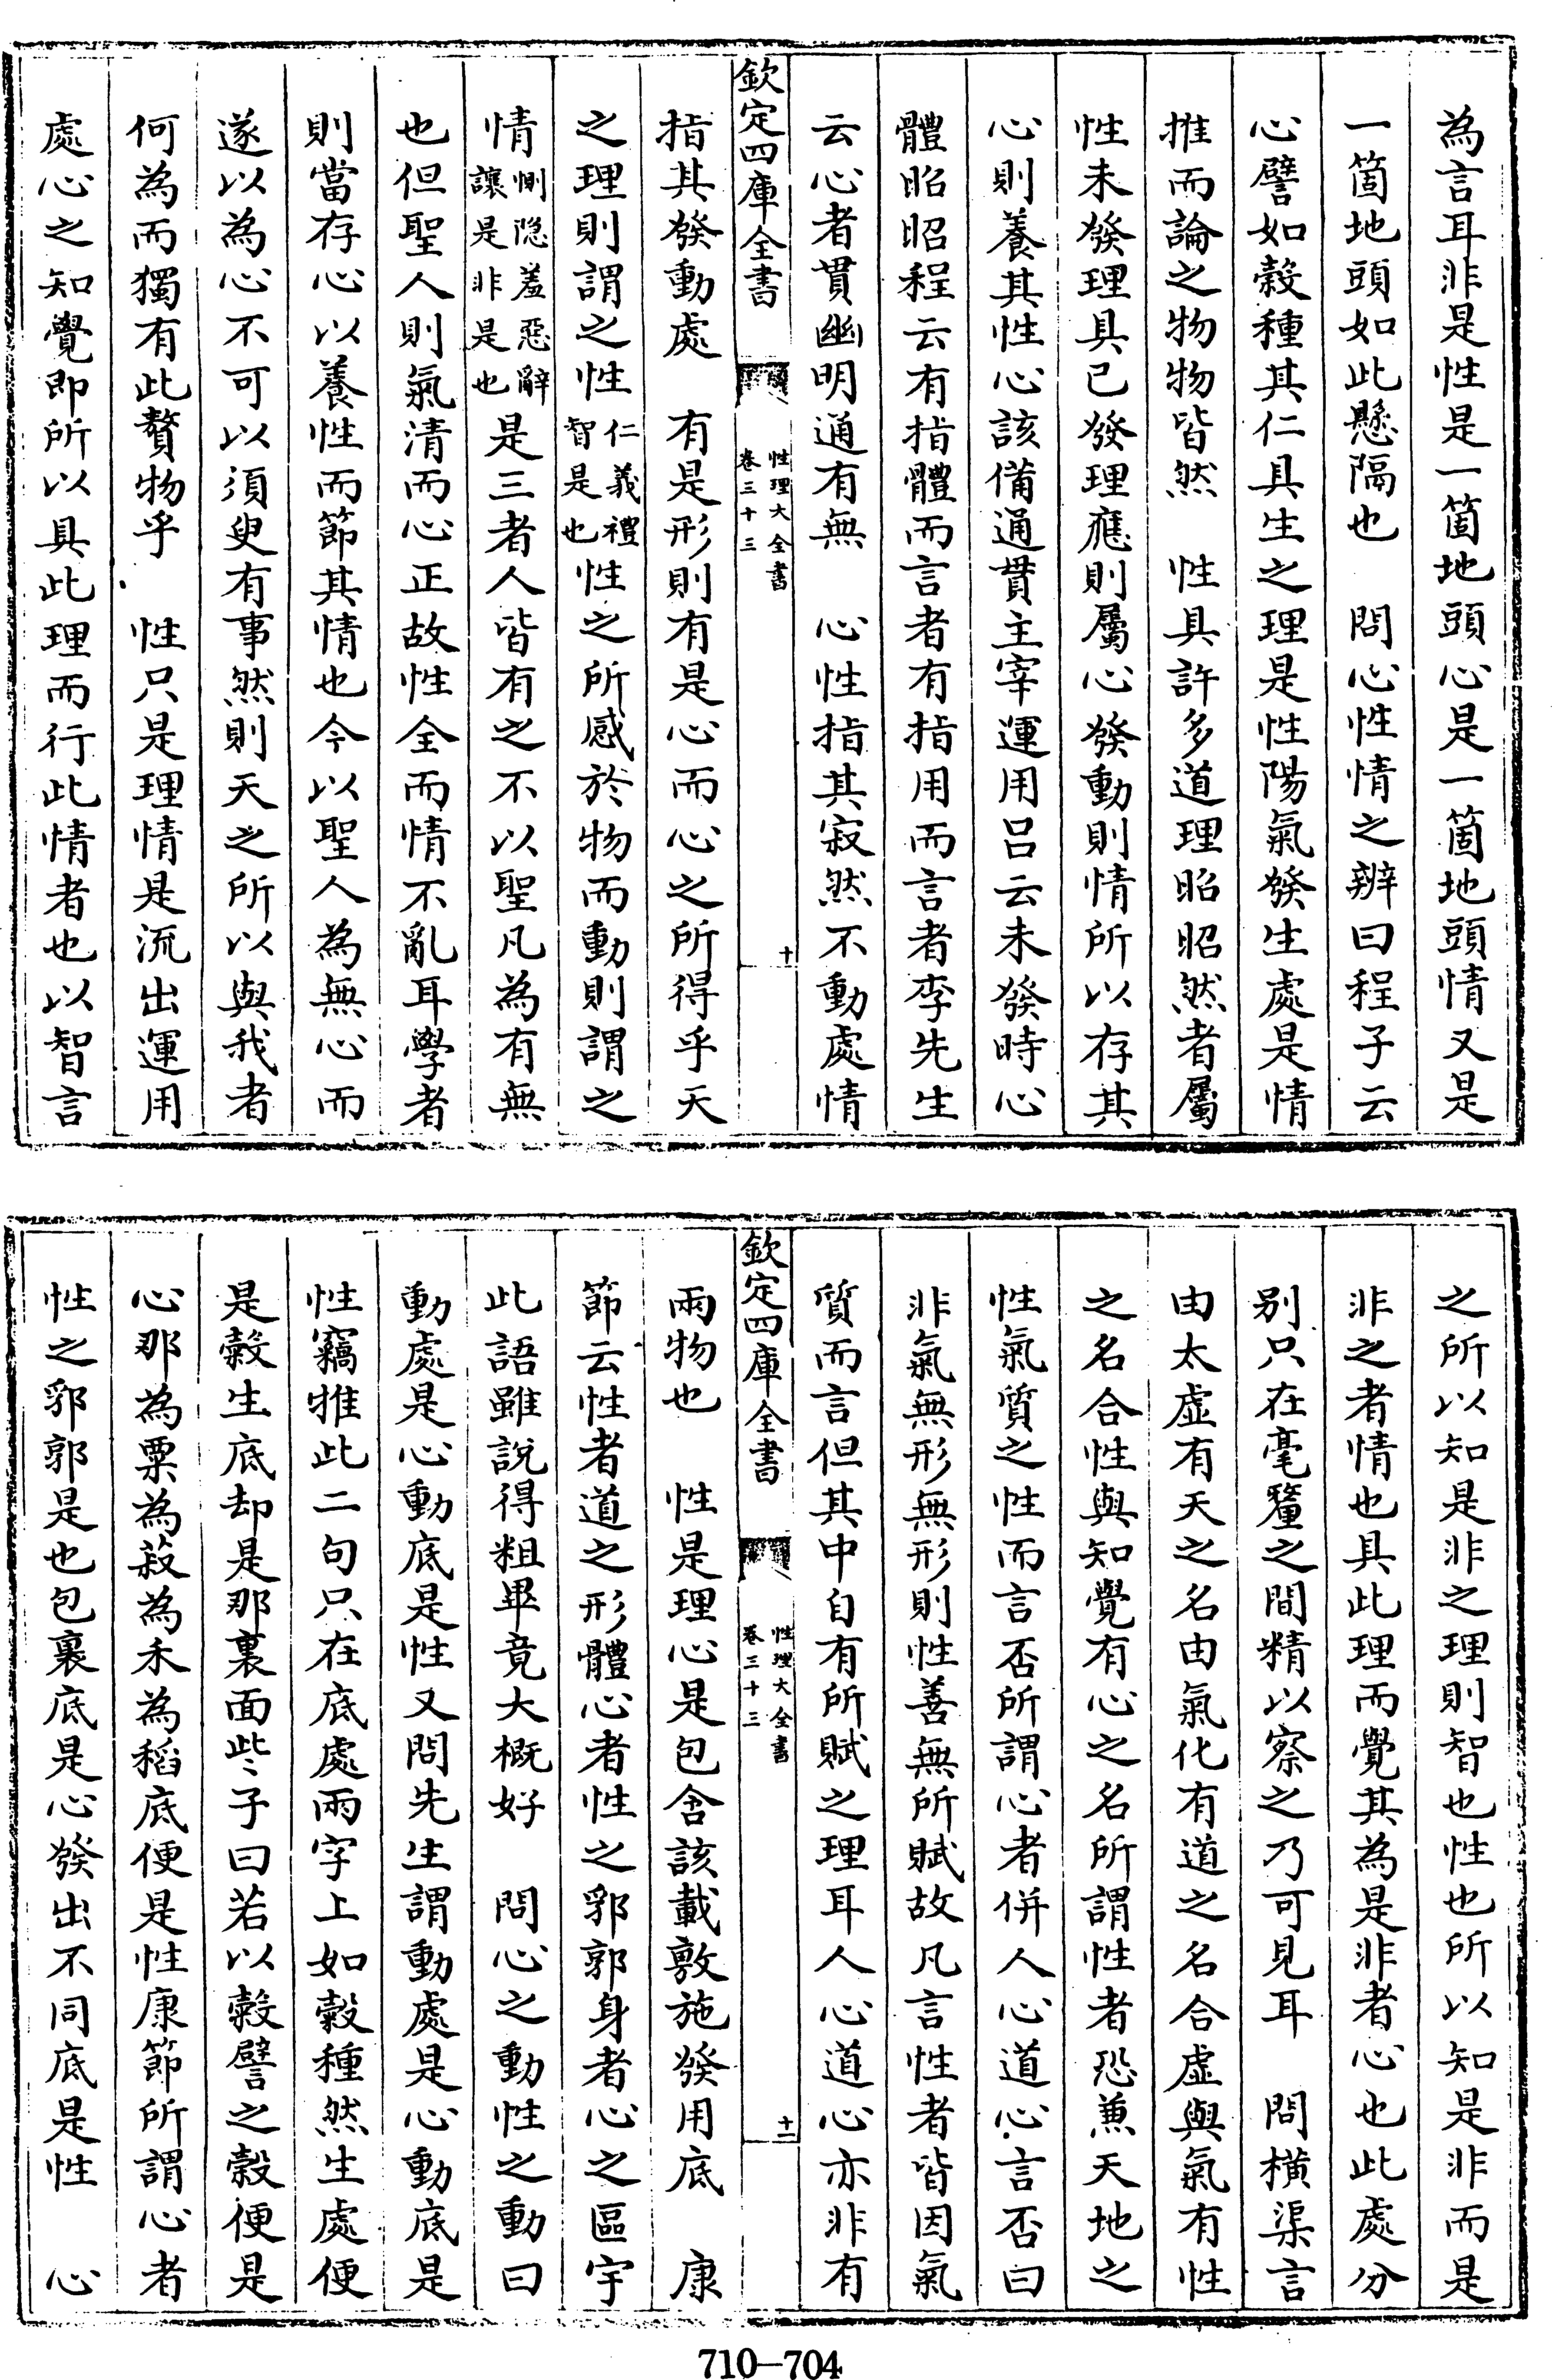 為言耳非是性是一箇地頭心是一箇地頭情又是
一箇地頭如此懸隔也　問心性情之辨曰程子云
心譬如穀種其仁具生之理是性陽氣發生處是情
推而論之物物皆然　性具許多道理昭昭然者屬
性未發理具已發理應則屬心發動則情所以存其
心則養其性心該備通貫主宰運用呂云未發時心
體昭昭程云有指體而言者有指用而言者李先生
云心者貫幽明通有無　心性指其寂然不動處情
欽定四庫全書　性理大全書卷三十三　十
指其發動處　有是形則有是心而心之所得乎天
之理則謂之性仁義禮智是也性之所感於物而動則謂之
情惻隱羞惡辭讓是非是也是三者人皆有之不以聖凡為有無
也但聖人則氣清而心正故性全而情不亂耳學者
則當存心以養性而節其情也今以聖人為無心而
遂以為心不可以須臾有事然則天之所以與我者
何為而獨有此贅物乎　性只是理情是流出運用
處心之知覺即所以具此理而行此情者也以智言
之所以知是非之理則智也性也所以知是非而是
非之者情也具此理而覺其為是非者心也此處分
別只在毫釐之間精以察之乃可見耳　問橫渠言
由太虛有天之名由氣化有道之名合虛與氣有性
之名合性與知覺有心之名所謂性者恐兼天地之
性氣質之性而言否所謂心者併人心道心言否曰
非氣無形無形則性善無所賦故凡言性者皆因氣
質而言但其中自有所賦之理耳人心道心亦非有
欽定四庫全書　性理大全書卷三十三　十一
兩物也　性是理心是包含該載敷施發用底　康
節云性者道之形體心者性之郛郭身者心之區宇
此語雖說得粗畢竟大概好　問心之動性之動曰
動處是心動底是性又問先生謂動處是心動底是
性竊推此二句只在底處兩字上如穀種然生處便
是穀生底却是那裏面些子曰若以穀譬之穀便是
心那為粟為菽為禾為稻底便是性康節所謂心者
性之郛郭是也包裏底是心發出不同底是性　心
710—704